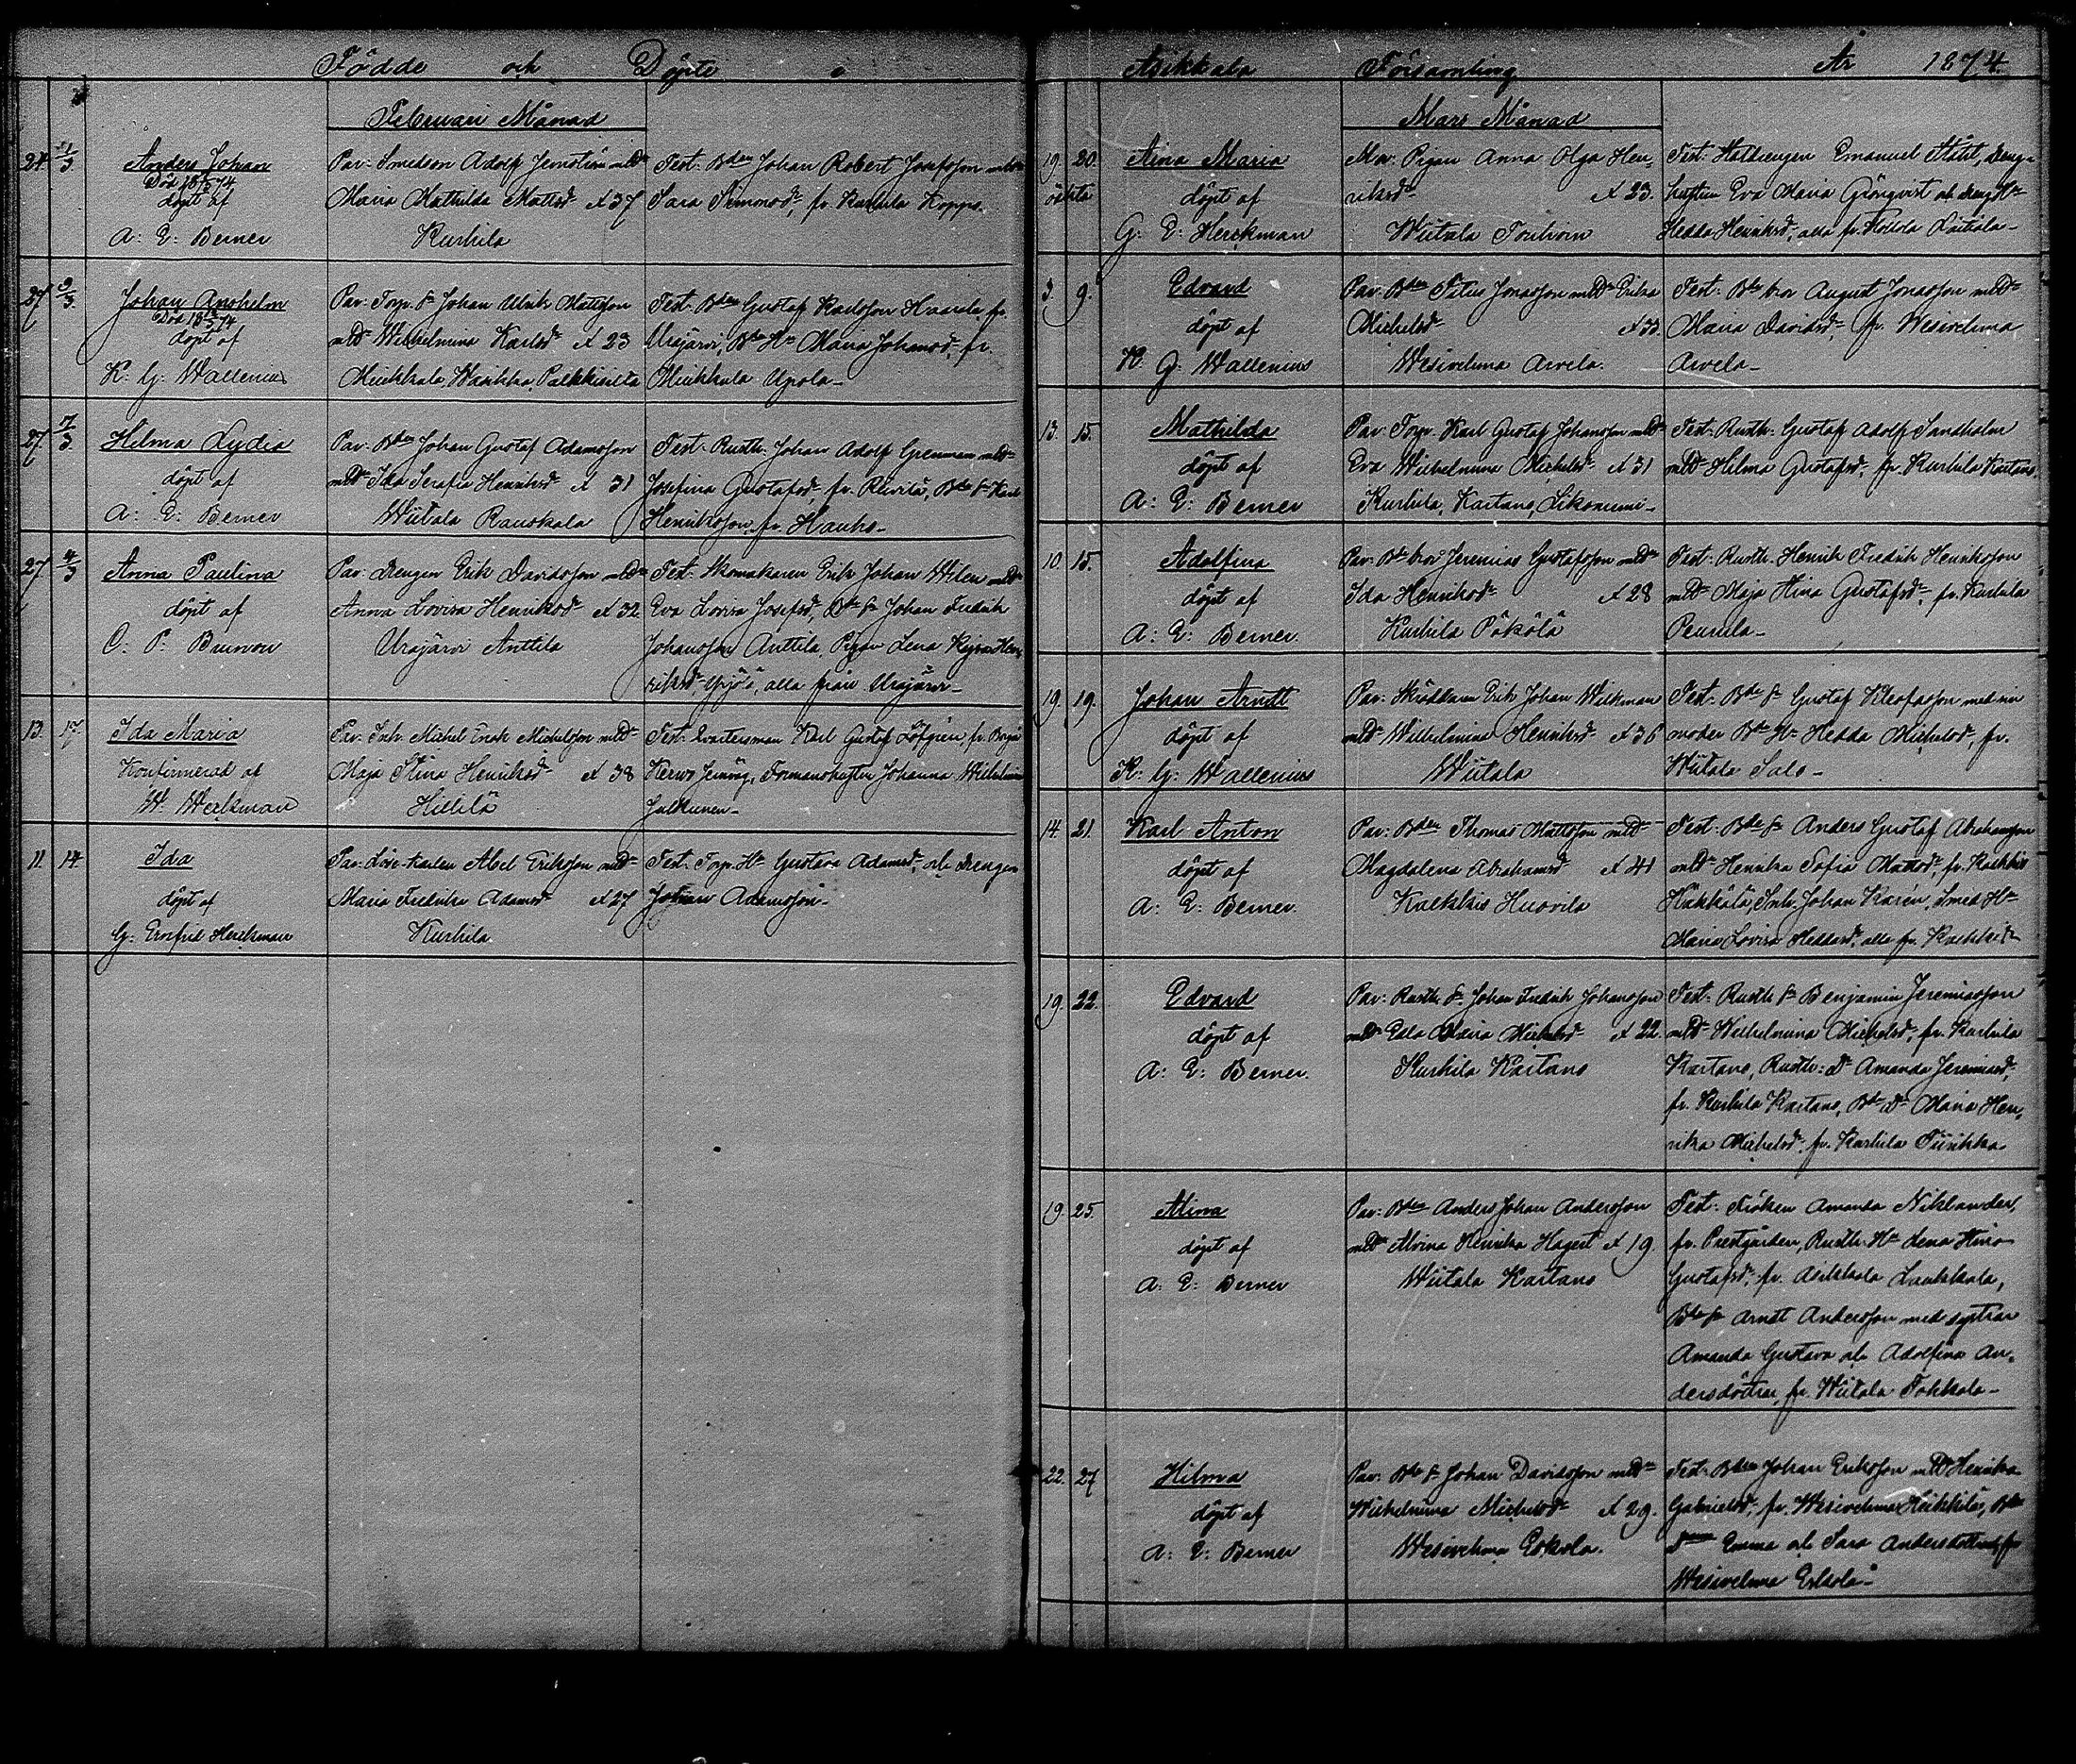 Födde och Döpte
Februari Månad
24. 1/3.
Anders Johan
Död 18 74
döpt af
A: E: Berner
Par: Smedsen Adolf mld
Maria Mathilda Mattsd. Æ 37
Kurhila
Test: Bden Johan Robert Josefsson
Sara Simonsd, fr. Kurhila Koppo.
27 2/3.
Johan Anshelm
Död 18 74
döpt af
K: G: Wallenius
Par: Torp. Sn Johan Ulrik Mattsson
mld Wilhelmina Karlsd. Æ 23
Muikkala
Test: Bden Gustaf Karlsson fr.
Urajärvi, Bde Hu Maria Johansd. fr.
Muikkala Upola
27 7/3.
Hilma Lydia
döpt af
A: E: Berner
Par: Bden Johan Gustaf Adamsson
mld Ida Serafia Henriksd. Æ 31
Wiitala Rauskala
Test: Rusth. Johan Adolf Grenman mld
Josefina Gustafsd. fr. Bde Sn Karl
Henriksson, fr. Hauho
27 4/3
Anna Paulina
döpt af
O: P: Brunou
Par: Drengen Erik Davidsson mld
Anna Lovisa Henriksd. Æ 32.
Urajärvi Anttila
Test: Skomakaren Erik Johan Wilen mld
Eva Lovisa Josefsd, Bde Sn Johan Fredrik
Johansson Anttila, Pigan Lena Kajsa Hen-
riksd. Yrjölä, alla från Urajärvi
13. 17.
Ida Maria
Konfirmerad af
W. Werkman
Par: Inh. Michel Enok Michelsson mld
Maja Stina Henriksd. Æ 38
Hillilä
Test: Qvartersman Karl Gustaf Löfgren, fr. Borgå
Kervo Jernväg, Formanshustru Johanna Wilhelmina
Julkunen
11. 14.
Ida
döpt af
G: Ernfrid Herckman
Par: Löse-karlen Abel Eriksson mld
Maria Fredrika Adamsd. Æ 27
Kurhila
Test: Torp. Hu Gustava Adamsd. och Drengen
Johan Adamsson
Asikkala Församling År 1874.
Mars Månad
19. 20.
oäkta
Aina Maria
döpt af
G: E: Herckman
Mor. Pigan Anna Olga Hen-
riksd. Æ 23.
Wiitala
Test: Emanuel Ståhl, Dreng-
hustrun Eva Maria Grönqvist och
Hedda Henriksd, alla fr.
3. 9.
Edvard
döpt af
K. G. Wallenius
Par: Bden Titus Jonasson mld Erika
Michelsd. Æ 33.
Wesivehma Arvela.
Test: Bde bror August Jonasson mld
Maria Davidsd. fr. Wesivehma
Arvela
13. 15.
Mathilda
döpt af
A: E: Berner
Par: Torp. Karl Gustaf Johansson mld
Eva Wilhelmina Michelsd. Æ 31
Kurhila, Kartano, Likoniemi
Test: Rusth. Gustaf Adolf Sandholm
mld Hilma Gustafsd. fr. Kurhila Kartano.
10. 15.
Adolfina
döpt af
A: E: Berner.
Par: Bde bror Jeremias Gustafsson mld
Ida Henriksd. Æ 28
Kurhila Pökölä
Test: Rusth. Henrik Fredrik Henriksson
mld Maja Stina Gustafsd. fr. Kurhila
19. 19.
Johan Arndt
döpt af
K: G: Wallenius
Par: Skräddaren Erik Johan Wilkman
mld Wilhelmina Henriksd. Æ 36
Wiitala
Test: Bde Sn Gustaf Kleofasson med sin
moder Bde Hu Hedda Michelsd, fr.
Wiitala Salo
14. 21.
Karl Anton
döpt af
A: E: Berner.
Par: Bden Thomas Mattsson mld
Magdalena Abrahamsd. Æ 41
Kalkkis Huovila
Test: Bde Sn Anders Gustaf Abrahamsson
mld Henrika Sofia Mattsd. fr. Kalkkis
Inh. Johan Karén, Smed Hu
Maria Lovisa alla fr. Kalkkis
19. 22.
Edvard
döpt af
A: E: Berner.
Par: Rusth Sn Johan Fredrik Johansson
mld Edla Maria Michelsd. Æ 22.
Kurhila Kartano
Test: Rusth Sn Benjamin Jeremiasson
mld Wilhelmina Michelsd, fr. Kurhila
Kartano, Rusth: Dr Amanda Jeremiasd,
fr. Kurhila Kartano, Bde Dr Maria Hen-
rika Michelsd. fr. Kurhila
19. 25.
Alina
döpt af
A: E: Berner
Par: Bden Anders Johan Andersson
mld Alvina Henrika Hagert Æ 19.
Wiitala Kartano
Test: Fröken Amanda Niklander,
fr. Prestgården, Rusth. Hu Lena Stina
Gustafsd. fr. Asikkala Laukkala,
Bde Sn Arndt Andersson med systrar
Amanda Gustava och Adolfina An-
dersdöttrar, fr. Wiitala Tokkola
22. 27
Hilma
döpt af
A: E: Berner
Par: Bde Sn Johan Davidsson mld
Wilhelmina Michelsd. Æ 29.
Wesivehma Eskola.
Test: Bden Johan Eriksson mld Henrika
Gabrielsd, fr. Wesivehma Heikkilä, Bde
Emma och Sara Andersdöttrar, fr
Wesivehma Eskola